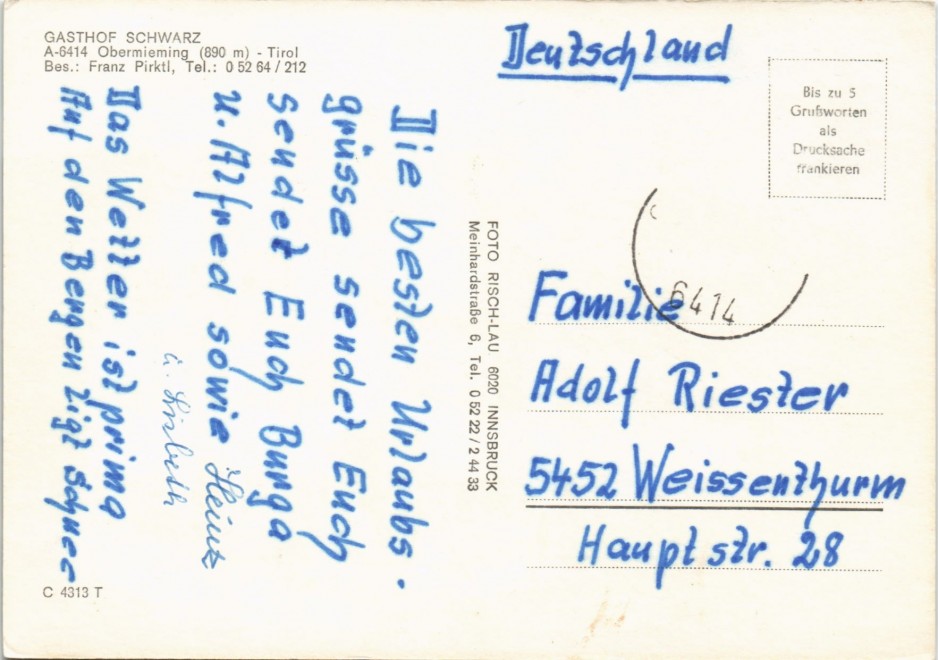 GASTHOF SCHWARZ
A-6414 Obermieming (890 m) - Tirol
Bes.: Franz Pirktl, Tel.: 0 52 64 / 212
Die besten Urlaubs.
grüsse sendet Euch
sendet Euch Burga
u. Alfred sowie Heinz
u. Lisbeth
Das Wetter ist prima
Auf den Bergen ligt Schnee
C 4313 T
FOTO RISCH-LAU 6020 INNSBRUCK
Meinhardstraße 6, Tel. 0 52 22 / 2 44 33
Deutschland
Bis zu 5
Grußworten
als
Drucksache
frankieren
6414
Familie
Adolf Riester
5452 Weissenthurm
Hauptstr. 28